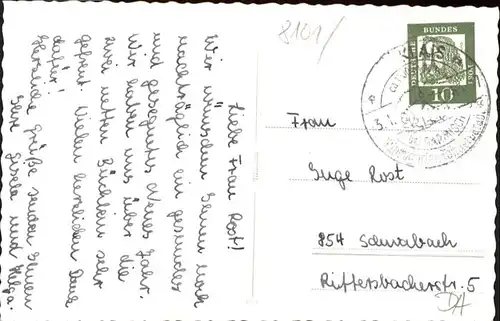 Liebe Frau Rost!
Wir wünschen Ihnen noch
nachträglich ein gesundes
und gesegnetes Neues Jahr.
Wir haben uns über die
zwei netten Büchlein sehr
gefreut. Vielen herzlichen Dank
dafür!
Herzliche Grüße senden Ihnen
Ihre Gisela und Helga.
8101/
DEUTSCHE BUNDESPOST
10
KLAIS
Frau
Inge Rost
854 Schwabach
Rittersbacherstr. 5